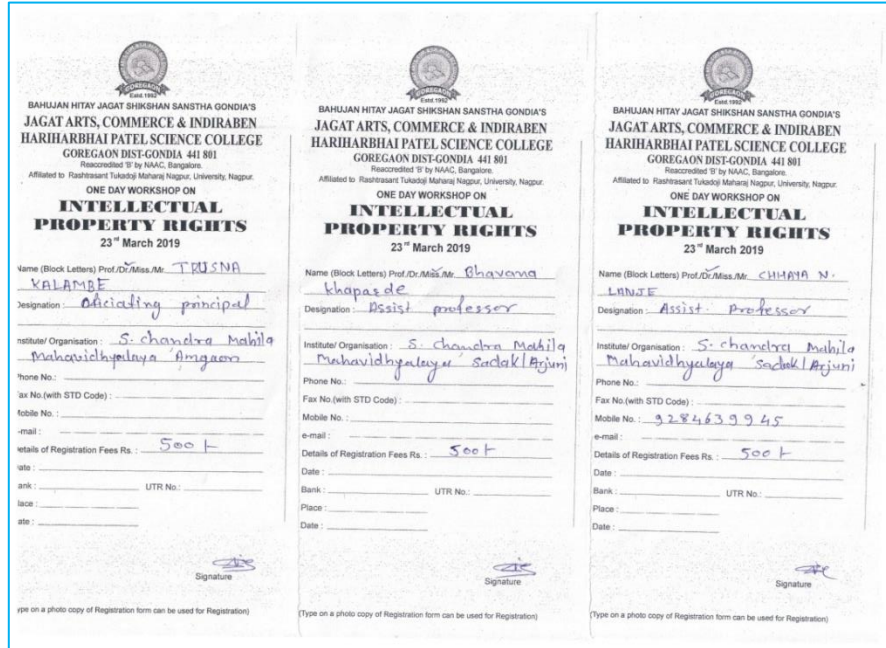 GOREGAON
Estd.1992
BAHUJAN HITAY JAGAT SHIKSHAN SANSTHA GONDIA'S
JAGAT ARTS, COMMERCE & INDIRABEN
HARIHARBHAI PATEL SCIENCE COLLEGE
GOREGAON DIST-GONDIA 441 801
Reaccredited 'B' by NAAC, Bangalore.
Affiliated to Rashtrasant Tukadoji Maharaj Nagpur, University, Nagpur.
ONE DAY WORKSHOP ON
INTELLECTUAL
PROPERTY RIGHTS
23rd March 2019
Name (Block Letters) Prof./Dr./Miss./Mr. TRUSNA
KALAMBE
Designation : Oficiating principal
nstitute/ Organisation : S. chandra Mahila
Mahavidhyalaya Amgaon
Phone No.:
ax No.(with STD Code) :
Mobile No. :
-mail :
etails of Registration Fees Rs. : 500/-
ate :
ank : UTR No.:
lace :
ate :
Signature
ype on a photo copy of Registration form can be used for Registration)
GOREGAON
Estd.1992
BAHUJAN HITAY JAGAT SHIKSHAN SANSTHA GONDIA'S
JAGAT ARTS, COMMERCE & INDIRABEN
HARIHARBHAI PATEL SCIENCE COLLEGE
GOREGAON DIST-GONDIA 441 801
Reaccredited 'B' by NAAC, Bangalore.
Affiliated to Rashtrasant Tukadoji Maharaj Nagpur, University, Nagpur.
ONE DAY WORKSHOP ON
INTELLECTUAL
PROPERTY RIGHTS
23rd March 2019
Name (Block Letters) Prof./Dr./Miss./Mr. Bhavana
khaparde
Designation : Assist professor
Institute/ Organisation : S. chandra Mahila
Mahavidhyalaya Sadak/Arjuni
Phone No.:
Fax No.(with STD Code) :
Mobile No. :
e-mail :
Details of Registration Fees Rs. : 500/-
Date :
Bank : UTR No.:
Place :
Date :
Signature
(Type on a photo copy of Registration form can be used for Registration)
GOREGAON
Estd.1992
BAHUJAN HITAY JAGAT SHIKSHAN SANSTHA GONDIA'S
JAGAT ARTS, COMMERCE & INDIRABEN
HARIHARBHAI PATEL SCIENCE COLLEGE
GOREGAON DIST-GONDIA 441 801
Reaccredited 'B' by NAAC, Bangalore.
Affiliated to Rashtrasant Tukadoji Maharaj Nagpur, University, Nagpur.
ONE DAY WORKSHOP ON
INTELLECTUAL
PROPERTY RIGHTS
23rd March 2019
Name (Block Letters) Prof./Dr./Miss./Mr. CHHAYA N.
LANJE
Designation : Assist. Professor
Institute/ Organisation : S. chandra Mahila
Mahavidhyalaya Sadak/Arjuni
Phone No.:
Fax No.(with STD Code) :
Mobile No. : 9284639945
e-mail :
Details of Registration Fees Rs. : 500/-
Date :
Bank : UTR No.:
Place :
Date :
Signature
(Type on a photo copy of Registration form can be used for Registration)